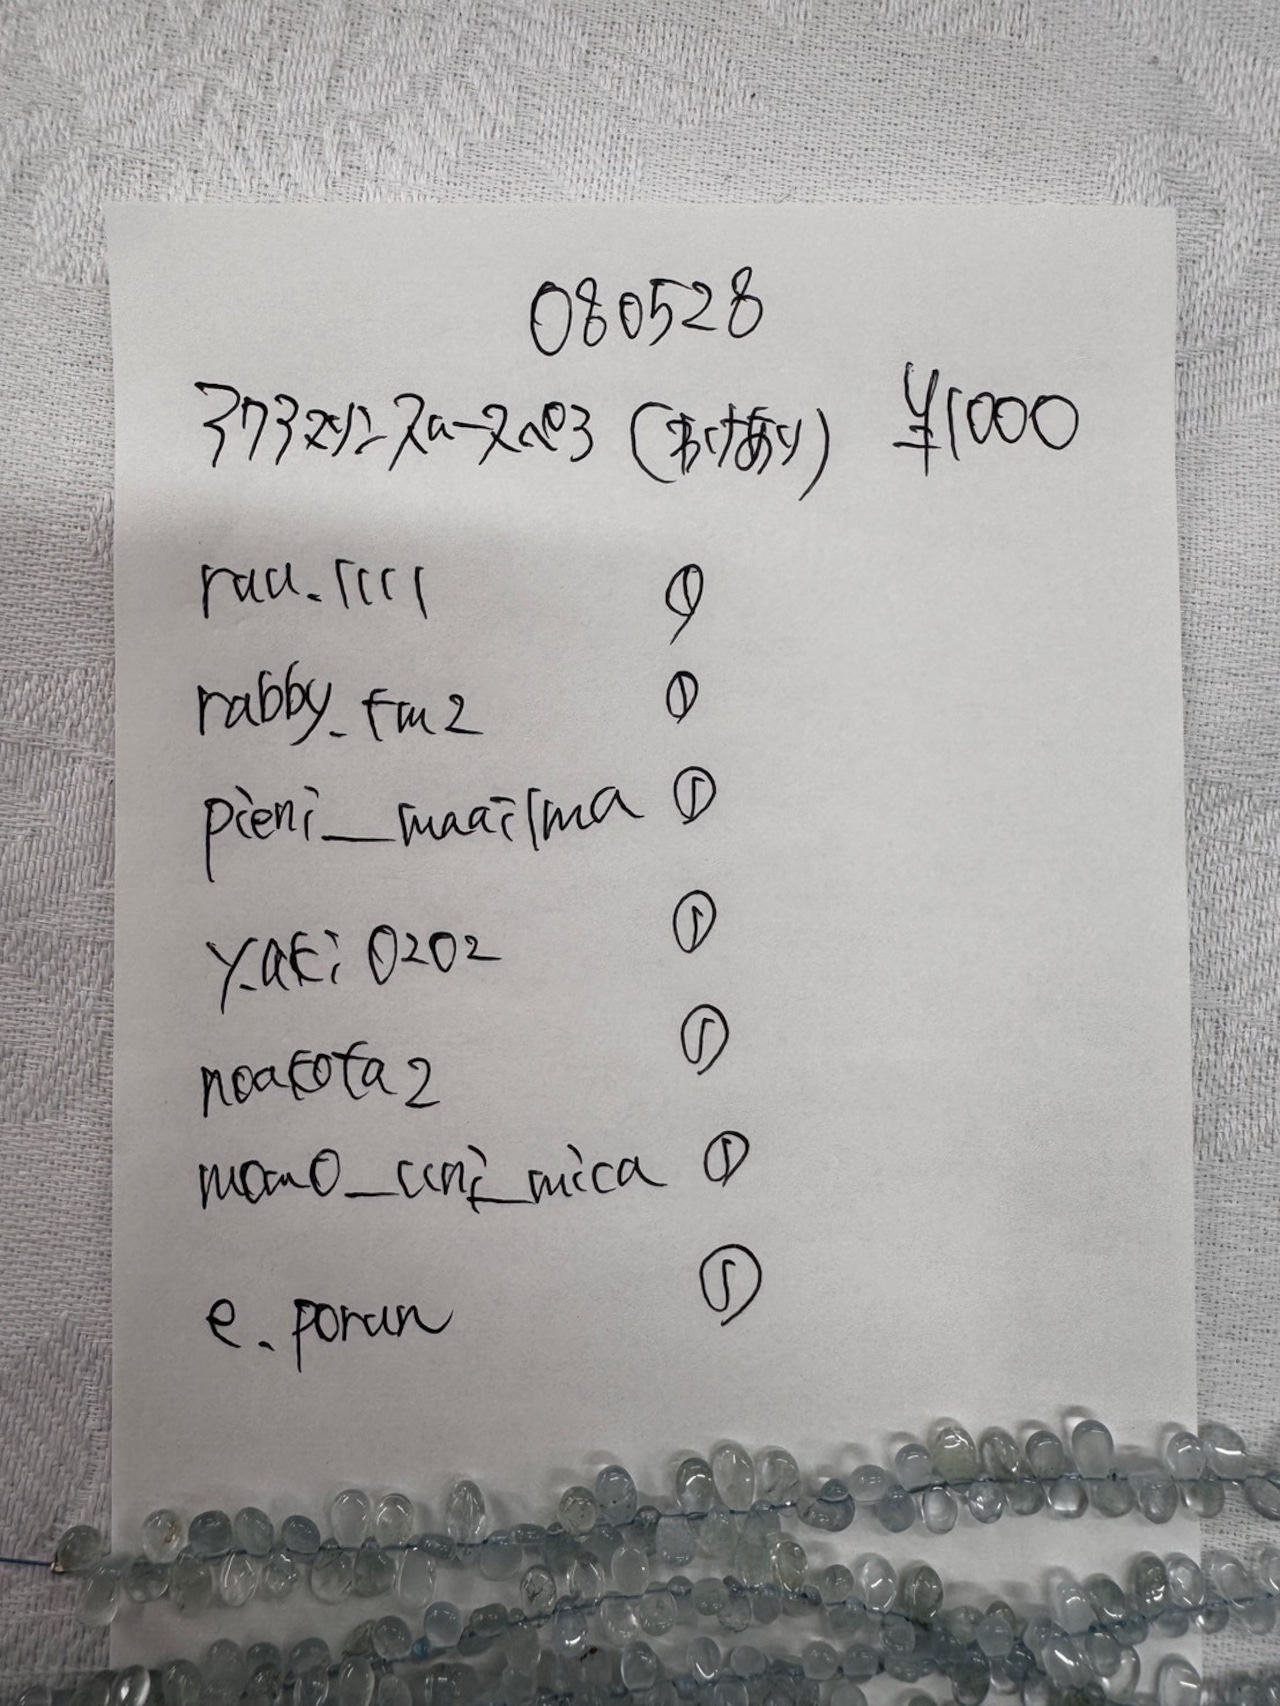 080528
アクアマリン スムースペア (わけあり) ¥1000
rau.1111 ①
rabby_tm2 ①
pieni_maailma ①
y.aki0202 ①
noakota2 ①
momo_uni_mica ①
e.porun ①